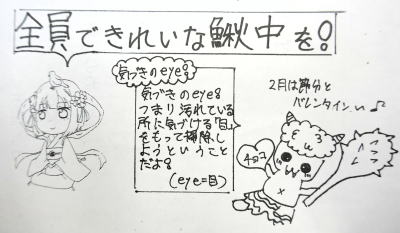 全員できれいな鰍中を!
気づきのeye!
気づきのeye!
つまり汚れている
所に気づける「目」
をもって掃除し
ようということ
だよ!
(eye=目)
2月は節分と
バレンタインい♪